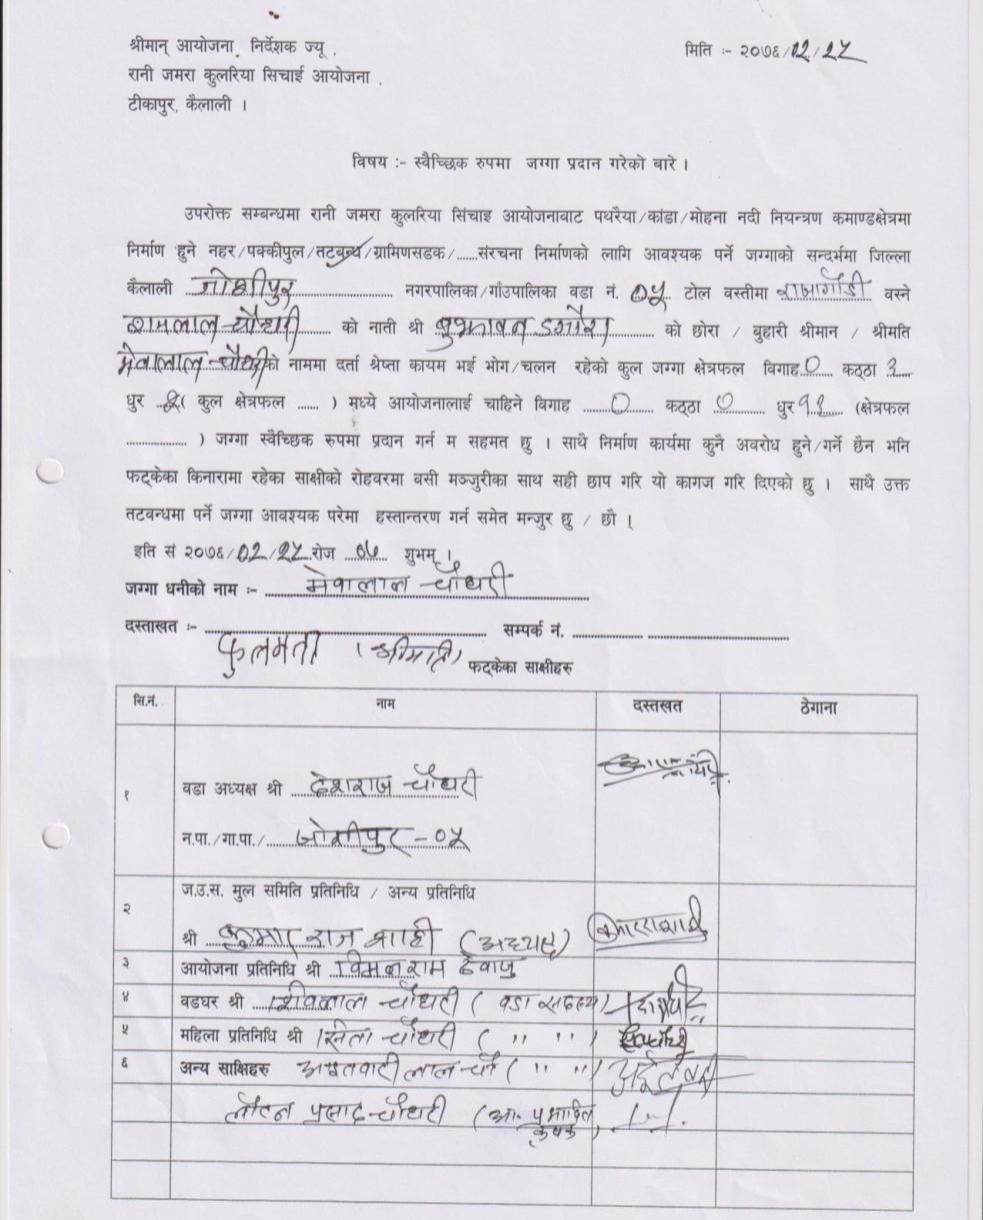 श्रीमान् आयोजना, निर्देशक ज्यू ,
मिति :- २०७६/02/27
रानी जमरा कुलरिया सिचाई आयोजना ,
टीकापुर, कैलाली ।
विषय :- स्वैच्छिक रुपमा जग्गा प्रदान गरेको बारे ।
उपरोक्त सम्बन्धमा रानी जमरा कुलरिया सिंचाइ आयोजनाबाट पथरैया/कांडा/मोहना नदी नियन्त्रण कमाण्डक्षेत्रमा
निर्माण हुने नहर/पक्कीपुल/तटबन्ध/ग्रामिणसडक/......संरचना निर्माणको लागि आवश्यक पर्ने जग्गाको सन्दर्भमा जिल्ला
कैलाली जोशीपुर नगरपालिका/गाँउपालिका वडा नं. ०५ टोल वस्तीमा वस्ने
रामलाल चौधरी को नाती श्री को छोरा / बुहारी श्रीमान / श्रीमति
मेवालाल चौधरी को नाममा दर्ता श्रेष्ता कायम भई भोग/चलन रहेको कुल जग्गा क्षेत्रफल विगाह 0 कठ्ठा
धुर ( कुल क्षेत्रफल ...... ) मध्ये आयोजनालाई चाहिने विगाह 0 कठ्ठा 0 धुर ११ (क्षेत्रफल
................ ) जग्गा स्वैच्छिक रुपमा प्रदान गर्न म सहमत छु । साथै निर्माण कार्यमा कुनै अवरोध हुने/गर्ने छैन भनि
फट्केका किनारामा रहेका साक्षीको रोहवरमा बसी मञ्जुरीका साथ सही छाप गरि यो कागज गरि दिएको छु । साथै उक्त
तटवन्धमा पर्ने जग्गा आवश्यक परेमा हस्तान्तरण गर्न समेत मन्जुर छु / छौ ।
इति सं २०७६/02/27 रोज शुभम् ।
जग्गा धनीको नाम :- मेवालाल चौधरी
दस्ताखत :- सम्पर्क नं.
फुलमती (श्रीमती) फट्केका साक्षीहरु
सि.नं. नाम दस्तखत ठेगाना
१ वडा अध्यक्ष श्री देशराज चौधरी
न.पा./गा.पा./ जोशीपुर - ०५
२ ज.उ.स. मुल समिति प्रतिनिधि / अन्य प्रतिनिधि
श्री कुमार राज शाही (अध्यक्ष)
३ आयोजना प्रतिनिधि श्री विमल राम
४ वडघर श्री शिवलाल चौधरी ( वडा सदस्य)
५ महिला प्रतिनिधि श्री चौधरी ( " " )
६ अन्य साक्षिहरु लाल चौ ( " " )
लौटन प्रसाद चौधरी